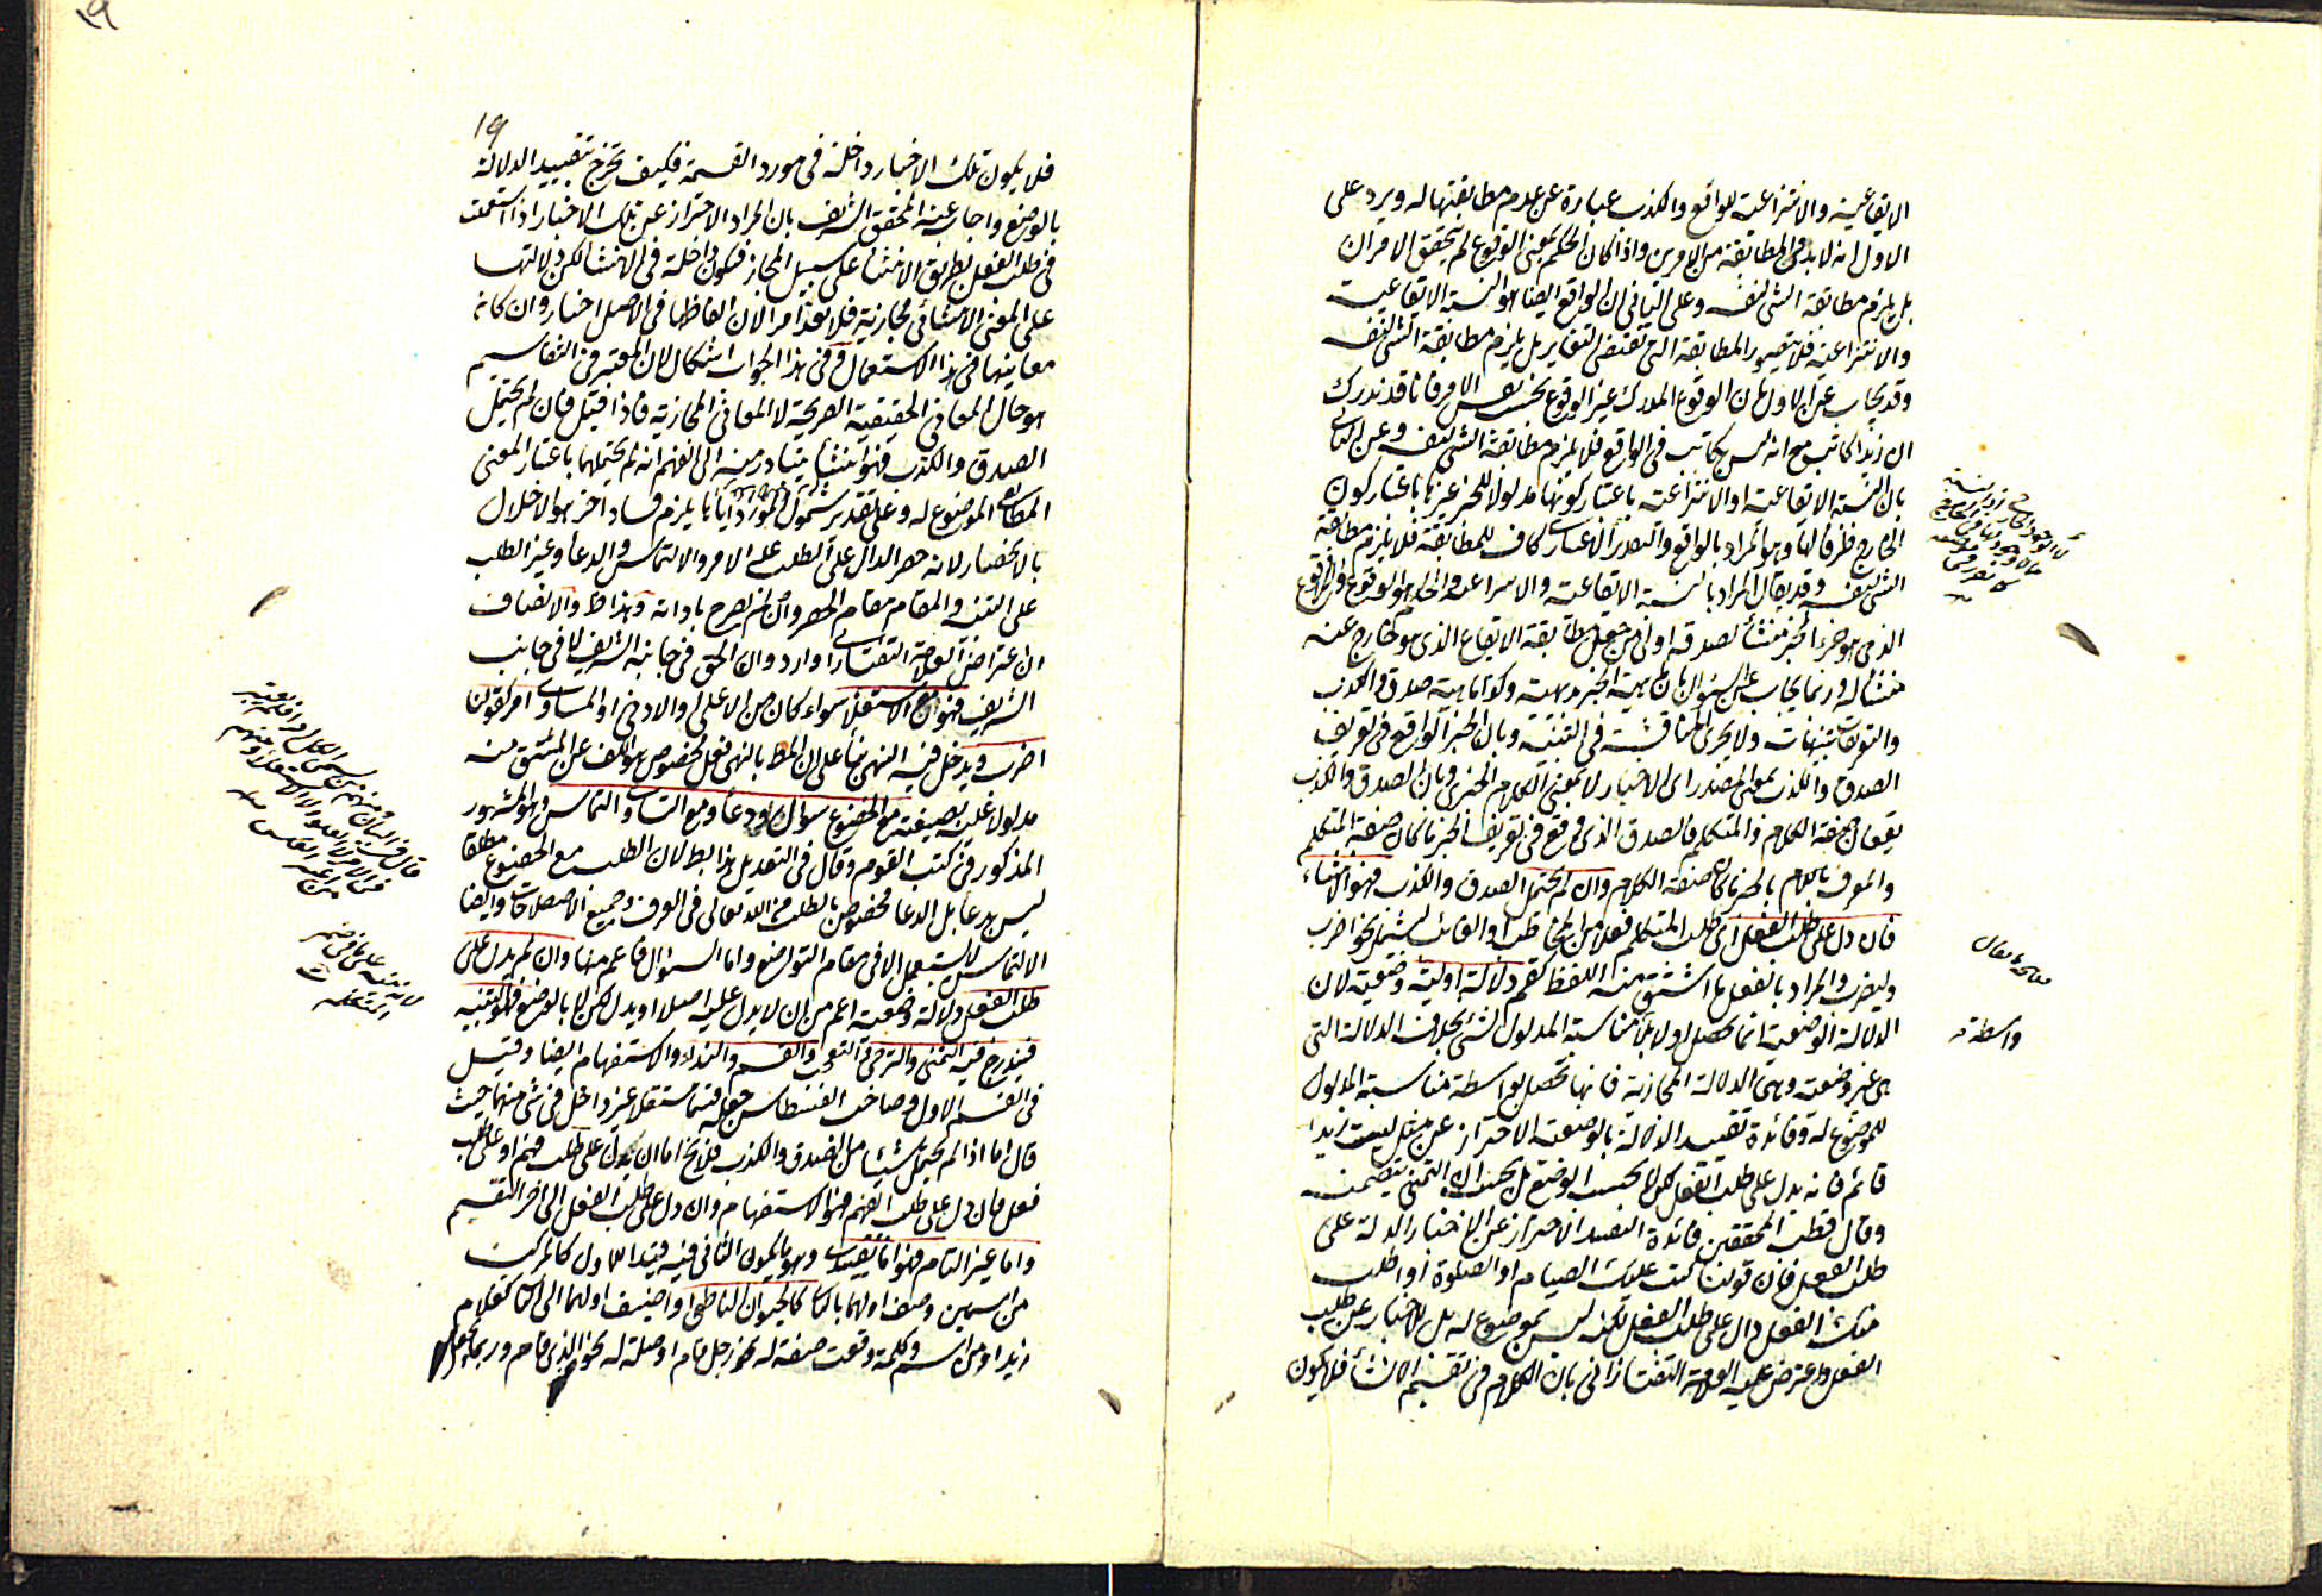 الايقاعية والانتزاعية للواقع والكذب عبارة عن عدم مطابقتها له ويرد على
الاول انه لا بد في المطابقة من الامرين واذا كان الحكم بمعنى الوقوع لم يتحقق الامران
بل يلزم مطابقة الشئ لنفسه وعلى الثاني ان الواقع ايضا هو النسبة الايقاعية
والانتزاعية فلا يتصور المطابقة التي تقتضي التغاير بل يلزم مطابقة الشئ لنفسه
وقد يجاب عن الاول بان الوقوع المدرك غير الوقوع بحسب نفس الامر فانا قد ندرك
ان زيدا كاتب مع انه ليس بكاتب في الواقع فلا يلزم مطابقة الشئ لنفسه وعن الثاني
بان النسبة الايقاعية او الانتزاعية باعتبار كونها مدلولا للخبر غيرها باعتبار كون
الخارج ظرفا لها وهو المراد بالواقع والتغاير الاعتباري كاف للمطابقة فلا يلزم مطابقة
الشئ لنفسه وقد يقال المراد بالنسبة الايقاعية والانتزاعية والحكم هو الوقوع واللاوقوع
الذي هو جزء الخبر منشأ لصدقه اولى من جعل مطابقة الايقاع الذي هو خارج عنه
منشأ له وربما يجاب عن السؤال بان ماهية الخبر بديهية وكذا ماهية صدق والكذب
والتعريفات تنبيهات ولا يجرى المناقشة في التنبيه وبان الخبر الواقع في تعريف
الصدق والكذب بمعنى المصدر اي الاخبار لا بمعنى الكلام الخبري وبان الصدق والكذب
يقعان صفة الكلام والمتكلم فالصدق الذي وقع في تعريف الخبر ما كان صفة المتكلم
والمعرف بالخبر ما كان صفة الكلام وان لم يحتمل الصدق والكذب فهو الانشاء
فان دل على طلب الفعل اي طلب المتكلم فعلا من المخاطب او الغائب ليشمل نحو اضرب
وليضرب والمراد بالفعل ما اشتق منه اللفظ كفهم دلالة اولية وضعية لان
الدلالة الوضعية انما تحصل اولا بلا مناسبة المدلول لشئ بخلاف الدلالة التي
هي غير وضعية وهي الدلالة المجازية فانها تحصل بواسطة مناسبة المدلول
للموضوع له وفائدة تقييد الدلالة بالوضعية الاحتراز عن مثل ليت زيدا
قائم فانه يدل على طلب الفعل لكن لا بحسب الوضع بل بحسب ان التمني يتضمنه
وقال قطب المحققين فائدة التقييد الاحتراز عن الاخبار الدالة على
طلب الفعل فان قولنا كتب عليك الصيام او الصلوة او اطلب
منك الفعل دال على طلب الفعل لكنه ليس بموضوع له بل للاخبار عن طلب
الفعل واعترض عليه العلامة التفتازاني بان الكلام في تقسيم الانشاء فلا يكون
واسطة
19
فلا يكون تلك الاخبار داخلة في مورد القسمة فكيف تخرج بتقييد الدلالة
بالوضع واجاب عنه المحقق الشريف بان المراد الاحتراز عن تلك الاخبار اذا استعملت
في طلب الفعل بطريق الانشاء على سبيل المجاز فتكون داخلة في الانشاء لكن دلالتها
على المعنى الانشائي مجازية فلا تعد امرا لان الفاظها في الاصل اخبار وان كانت
معانيها في هذا الاستعمال وفي هذا الجواب اشكال لان المعتبر في التقاسيم
هو حال المعاني الحقيقية الصريحة لا المعاني المجازية فاذا قيل فان لم يحتمل
الصدق والكذب فهو انشاء يتبادر منه الى الفهم انه لم يحتملهما باعتبار المعنى
المطابقي الموضوع له وعلى تقدير شمول المورد اياها يلزم فساد آخر هو الاخلال
بالانحصار لانه حصر الدال على الطلب على الامر والالتماس والدعاء وغير الطلب
على التنبيه والمقام مقام الحصر وان لم يصرح باداته وهذا ظ والانصاف
ان اعتراض العلامة التفتازاني وارد وان الحق في جانبه الشريف لا في جانب
الشريف فهو مع الاستعلاء سواء كان من الاعلى او الادنى او المساوي امر كقولنا
اضرب ويدخل فيه النهي بناء على ان المط بالنهي فعل مخصوص هو الكف عن المشتق منه
مدلول عليه بصيغته مع الخضوع سؤال ودعاء ومع التساوي التماس وهو المشهور
المذكور في كتب القوم وقال في التعديل هذا بط لان الطلب مع الخضوع مطلقا
ليس بدعاء بل الدعاء مخصوص بالطلب من الله تعالى في العرف وجميع الاصطلاحات وايضا
الالتماس لا يستعمل الا في مقام التواضع واما السؤال فاعم منها وان لم يدل على
طلب الفعل دلالة وضعية اعم من ان لا يدل عليه اصلا او يدل لكن لا بالوضع فهو تنبيه
فيندرج فيه التمني والترجي والتعجب والقسم والنداء والاستفهام ايضا وقيل
في القسم الاول وصاحب القسطاس جعله قسما مستقلا غير داخل في شئ منهما حيث
قال اما اذا لم يحتمل شيئا من الصدق والكذب فلا يخ اما ان يدل على طلب فهم او على طلب
فعل فان دل على طلب الفهم فهو الاستفهام وان دل على طلب الفعل الى اخر التقسيم
واما غير التام فهو اما تقييدي وهو ما يكون الثاني فيه قيدا للاول كالمركب
من اسمين وصف اولهما بالثاني كالحيوان الناطق او اضيف اولهما الى الثاني كغلام
زيد او من اسم وكلمة وقعت صفة له نحو رجل قام او صلة له نحو الذي قام وربما يجعل